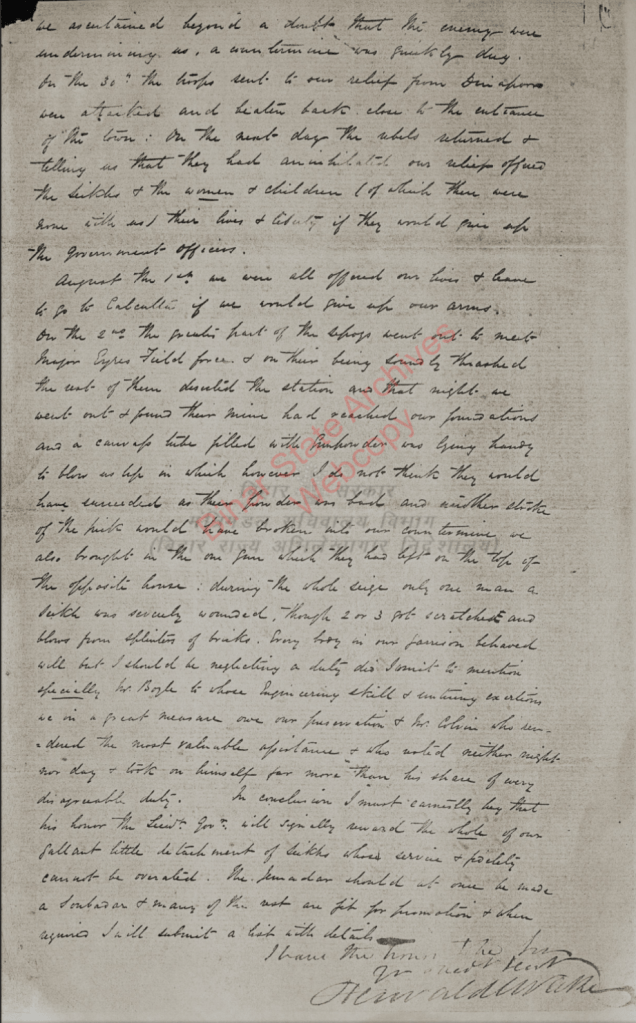 we ascertained beyond a doubt that the enemy were
undermining us, a countermine was quickly dug.
On the 30th the troops sent to our relief from Dinapore
were attacked and beaten back close to the entrance
of the town: On the next day the rebels returned &
telling us that they had annihilated our relief offered
the Seikhs & the women & children (of which there were
none with us) their lives & liberty if they would give up
the Government Officers.
August the 1st we were all offered our lives & leave
to go to Calcutta if we would give up our arms.
On the 2nd the greater part of the sepoys went out to meet
Major Eyres Field force & on their being soundly thrashed
the rest of them deserted the station and that night we
went out & found their mine had reached our foundations
and a canvass tube filled with Gunpowder was lying handy
to blow us up in which however I do not think they would
have succeeded as their powder was bad and another stroke
of the pick would have broken into our countermine we
also brought in the one gun which they had left on the top of
the opposite house: during the whole seige only one man a
Seikh was severely wounded, though 2 or 3 got scratches and
blows from splinters of bricks. Every body in our garrison behaved
well but I should be neglecting a duty did I omit to mention
specially Mr. Boyle to whose Engineering skill & untiring exertions
we in a great measure owe our preservation & Mr. Colvin who ren-
-dered the most valuable assistance & who rested neither night
nor day & took on himself far more than his share of every
disagreeable duty. In conclusion I must earnestly beg that
his honor the Lieut. Govr. will signally reward the whole of our
gallant little detachment of Seikhs whose service & fidelity
cannot be overated. The Jemadar should at once be made
a Soubadar & many of the rest are fit for promotion & when
required I will submit a list with details
I have the honor
Bihar State Archives
Webcopy